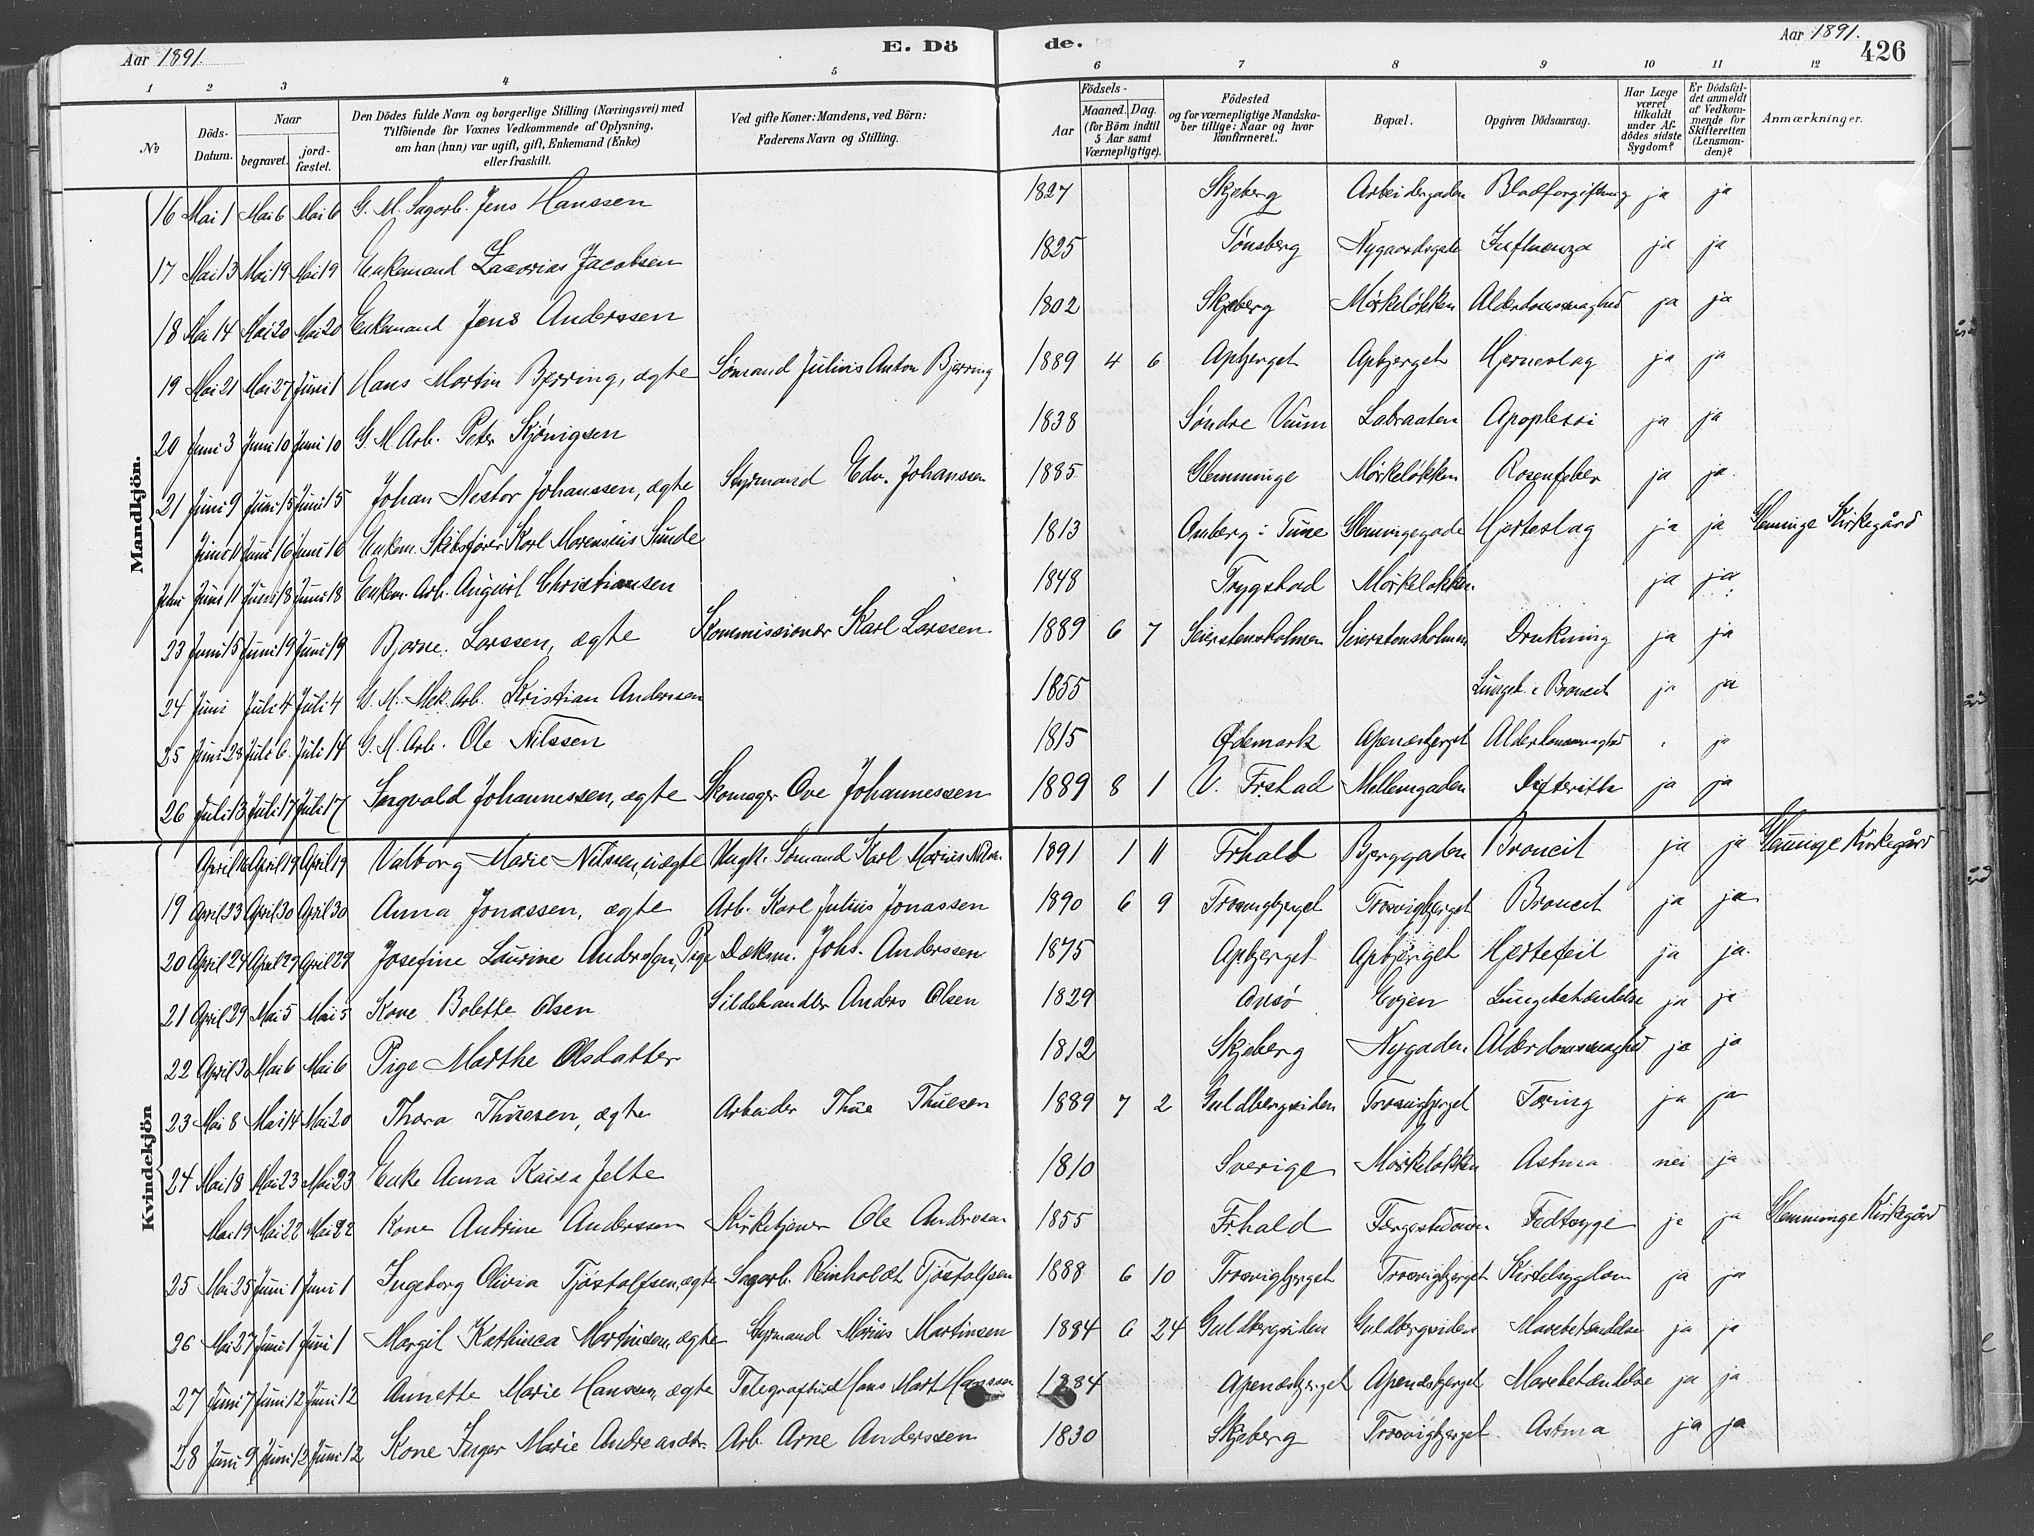 Aar 1891. E. Dö de. Aar 1891. 426
1 2 3 4 5 6 7 8 9 10 11 12
№ Döds-Datum. Naar begravet. jord-fæstet. Den Dödes fulde Navn og borgerlige Stilling (Næringsvei) med Tilföiende for Voxnes Vedkommende af Oplysning, om han (hun) var ugift, gift, Enkemand (Enke) eller fraskilt. Ved gifte Koner: Mandens, ved Börn: Faderens Navn og Stilling. Födsels- Aar Maaned. Dag. (for Börn indtil 5 Aar samt Værnepligtige). Födested og for værnepligtige Mandskaber tillige: Naar og hvor konfirmeret. Bopæl. Opgiven Dödsaarsag. Har Læge været tilkaldt under Afdödes sidste Sygdom? Er Dödsfaldet anmeldt af Vedkommende for Skifteretten (Lensmanden)? Anmærkninger.
Mandkjön.
16 Mai 1 Mai 6 Mai 6 G. M. Sagarb. Jens Hanssen 1827 Skjeberg Arbeidergaden Blodforgiftning ja ja
17 Mai 13 Mai 19 Mai 19 Enkemand Zacarias Jacobsen 1825 Tønsberg Nygaardsgade Influenza ja ja
18 Mai 14 Mai 20 Mai 20 Enkemand Jens Anderssen 1802 Skjeberg Mørkeløkken Alderdomssvaghed ja ja
19 Mai 21 Mai 27 Juni 1 Hans Martin Bjerring, ægte Sømand Julius Anton Bjerring 1889 4 6 Apbjerget Apbjerget Hjerneslag ja ja
20 Juni 3 Juni 10 Juni 10 G. M. Arb. Peter 1838 Søndre Labraaten Apoplexi ja ja
21 Juni 9 Juni 15 Juni 15 Johan Nestor Johanssen, ægte Styrmand Edv. Johanssen 1885 Glemminge Mørkeløkken Rosenfeber ja ja
Juni 11 Juni 16 Juni 16 Enkem. Skibsfører Karl Sunde 1813 Tune Glemmingegade Hjerteslag ja ja Glemminge Kirkegård
Juni Juni 11 Juni 18 Juni 18 Enkem. Arb. August Christiansen 1848 Trygstad Mørkeløkken ja ja
23 Juni 15 Juni 19 Juni 19 Bjarne Larssen, ægte Kommissionær Karl Larssen 1889 6 7 Seierstensholmen Seierstensholmen Drukning ja ja
24 Juni Juli 4 Juli 4 G. M. Mek. Arb. Kristian Andersen 1855 Broncit ja ja
25 Juni 28 Juli 6 Juli 14 G. M. Arb. Ole Nilssen 1815 Ødemark Apenæsbjerget Alderdomssvaghed ja
26 Juli 13 Juli 17 Juli 17 Ingvald Johannessen, ægte Skomager Ove Johannessen 1889 8 1 V. Frstad Mellemgaden Difterith ja ja
Kvindekjön
April 16 April 19 April 19 Valborg Marie Nilssen, uægte Ungk. Sømand Karl Marius Nilsen 1891 1 11 Frhald Bjerggaden Broncit ja ja Glemminge Kirkegård
19 April 23 April 30 April 30 Anna Jonassen, ægte Arb. Karl Julius Jonassen 1890 6 9 Trosvigbjerget Trosvigbjerget Broncit ja ja
20 April 24 April 27 April 27 Josefine Laurine Anderssen, Pige Dæksm. Johs. Anderssen 1875 Apbjerget Apbjerget Hjertefeil ja ja
21 April 29 Mai 5 Mai 5 Kone Bolette Olsen Sildehandler Anders Olsen 1829 Onsø Evjen Lungebetændelse ja ja
22 April 30 Mai 6 Mai 6 Pige Marthe Olsdatter 1812 Skjeberg Nygaden Alderdomssvaghed ja ja
23 Mai 8 Mai 14 Mai 20 Thora Thuesen, ægte Arbeider Thue Thuesen 1889 7 2 Guldbergsiden Trosvigbjerget Tæring ja ja
24 Mai 18 Mai 23 Mai 23 Enke Anna Kaisa Jelte 1810 Sverige Mørkeløkken Astma nei ja
Mai 19 Mai 22 Mai 22 Kone Andrine Anderssen Kirketjener Ole Anderssen 1855 Frhald Færgestedveien ja ja Glemminge Kirkegård
25 Mai 25 Juni 1 Juni 1 Ingeborg Olivia Tjøstolfsen, ægte Sagarb. Reinholdt Tjøstolfsen 1888 6 10 Trosvigbjerget Trosvigbjerget Kirtelsygdom ja ja
26 Mai 27 Juni 1 Juni 1 Margit Kathinca Martinsen, ægte Styrmand Marius Martinsen 1884 6 24 Guldbergsiden Guldbergsiden Mavebetændelse ja ja
27 Juni 7 Juni 12 Juni 12 Annette Marie Hansen, ægte Telegrafbud Hans Mart. Hanssen 1884 Apenæsbjerget Apenæsbjerget Mavebetændelse ja ja
28 Juni 9 Juni 12 Juni 12 Kone Inger Marie Andreasdtr. Arb. Arne Anderssen 1830 Skjeberg Trosvigbjerget Astma ja ja